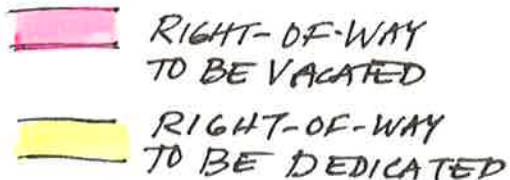 RIGHT-OF-WAY
TO BE VACATED
RIGHT-OF-WAY
TO BE DEDICATED